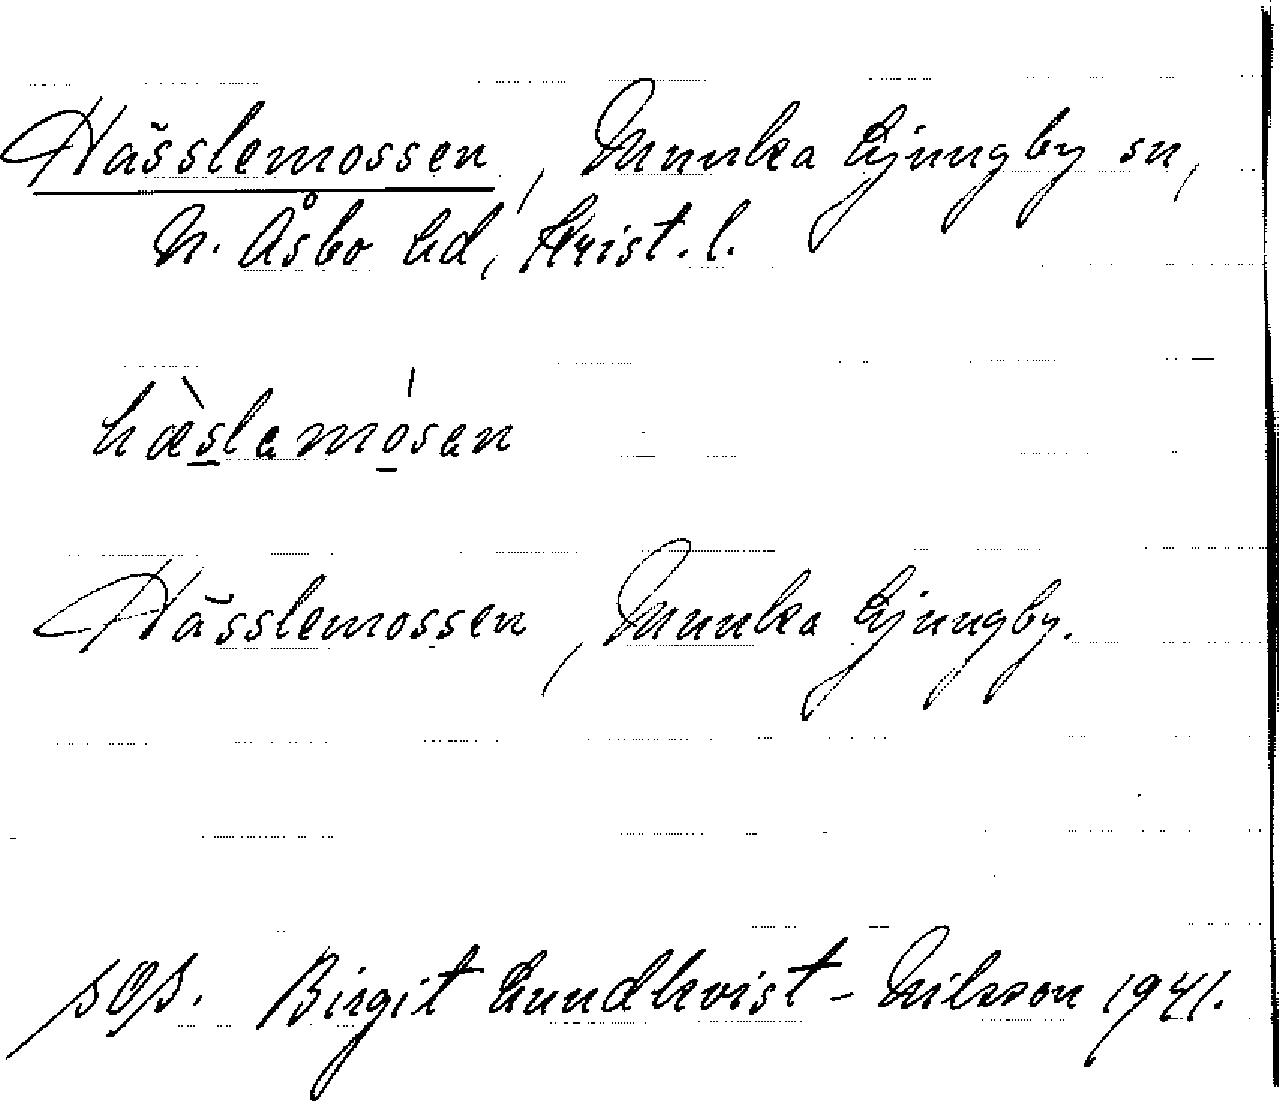 Hässlemossen, Munka Ljungby sn,
N. Åsbo hd, Krist. l.
hæ̀slamósan
Hässlemossen, Munka Ljungby.
Birgit Lundkvist - Nilsson 1941.